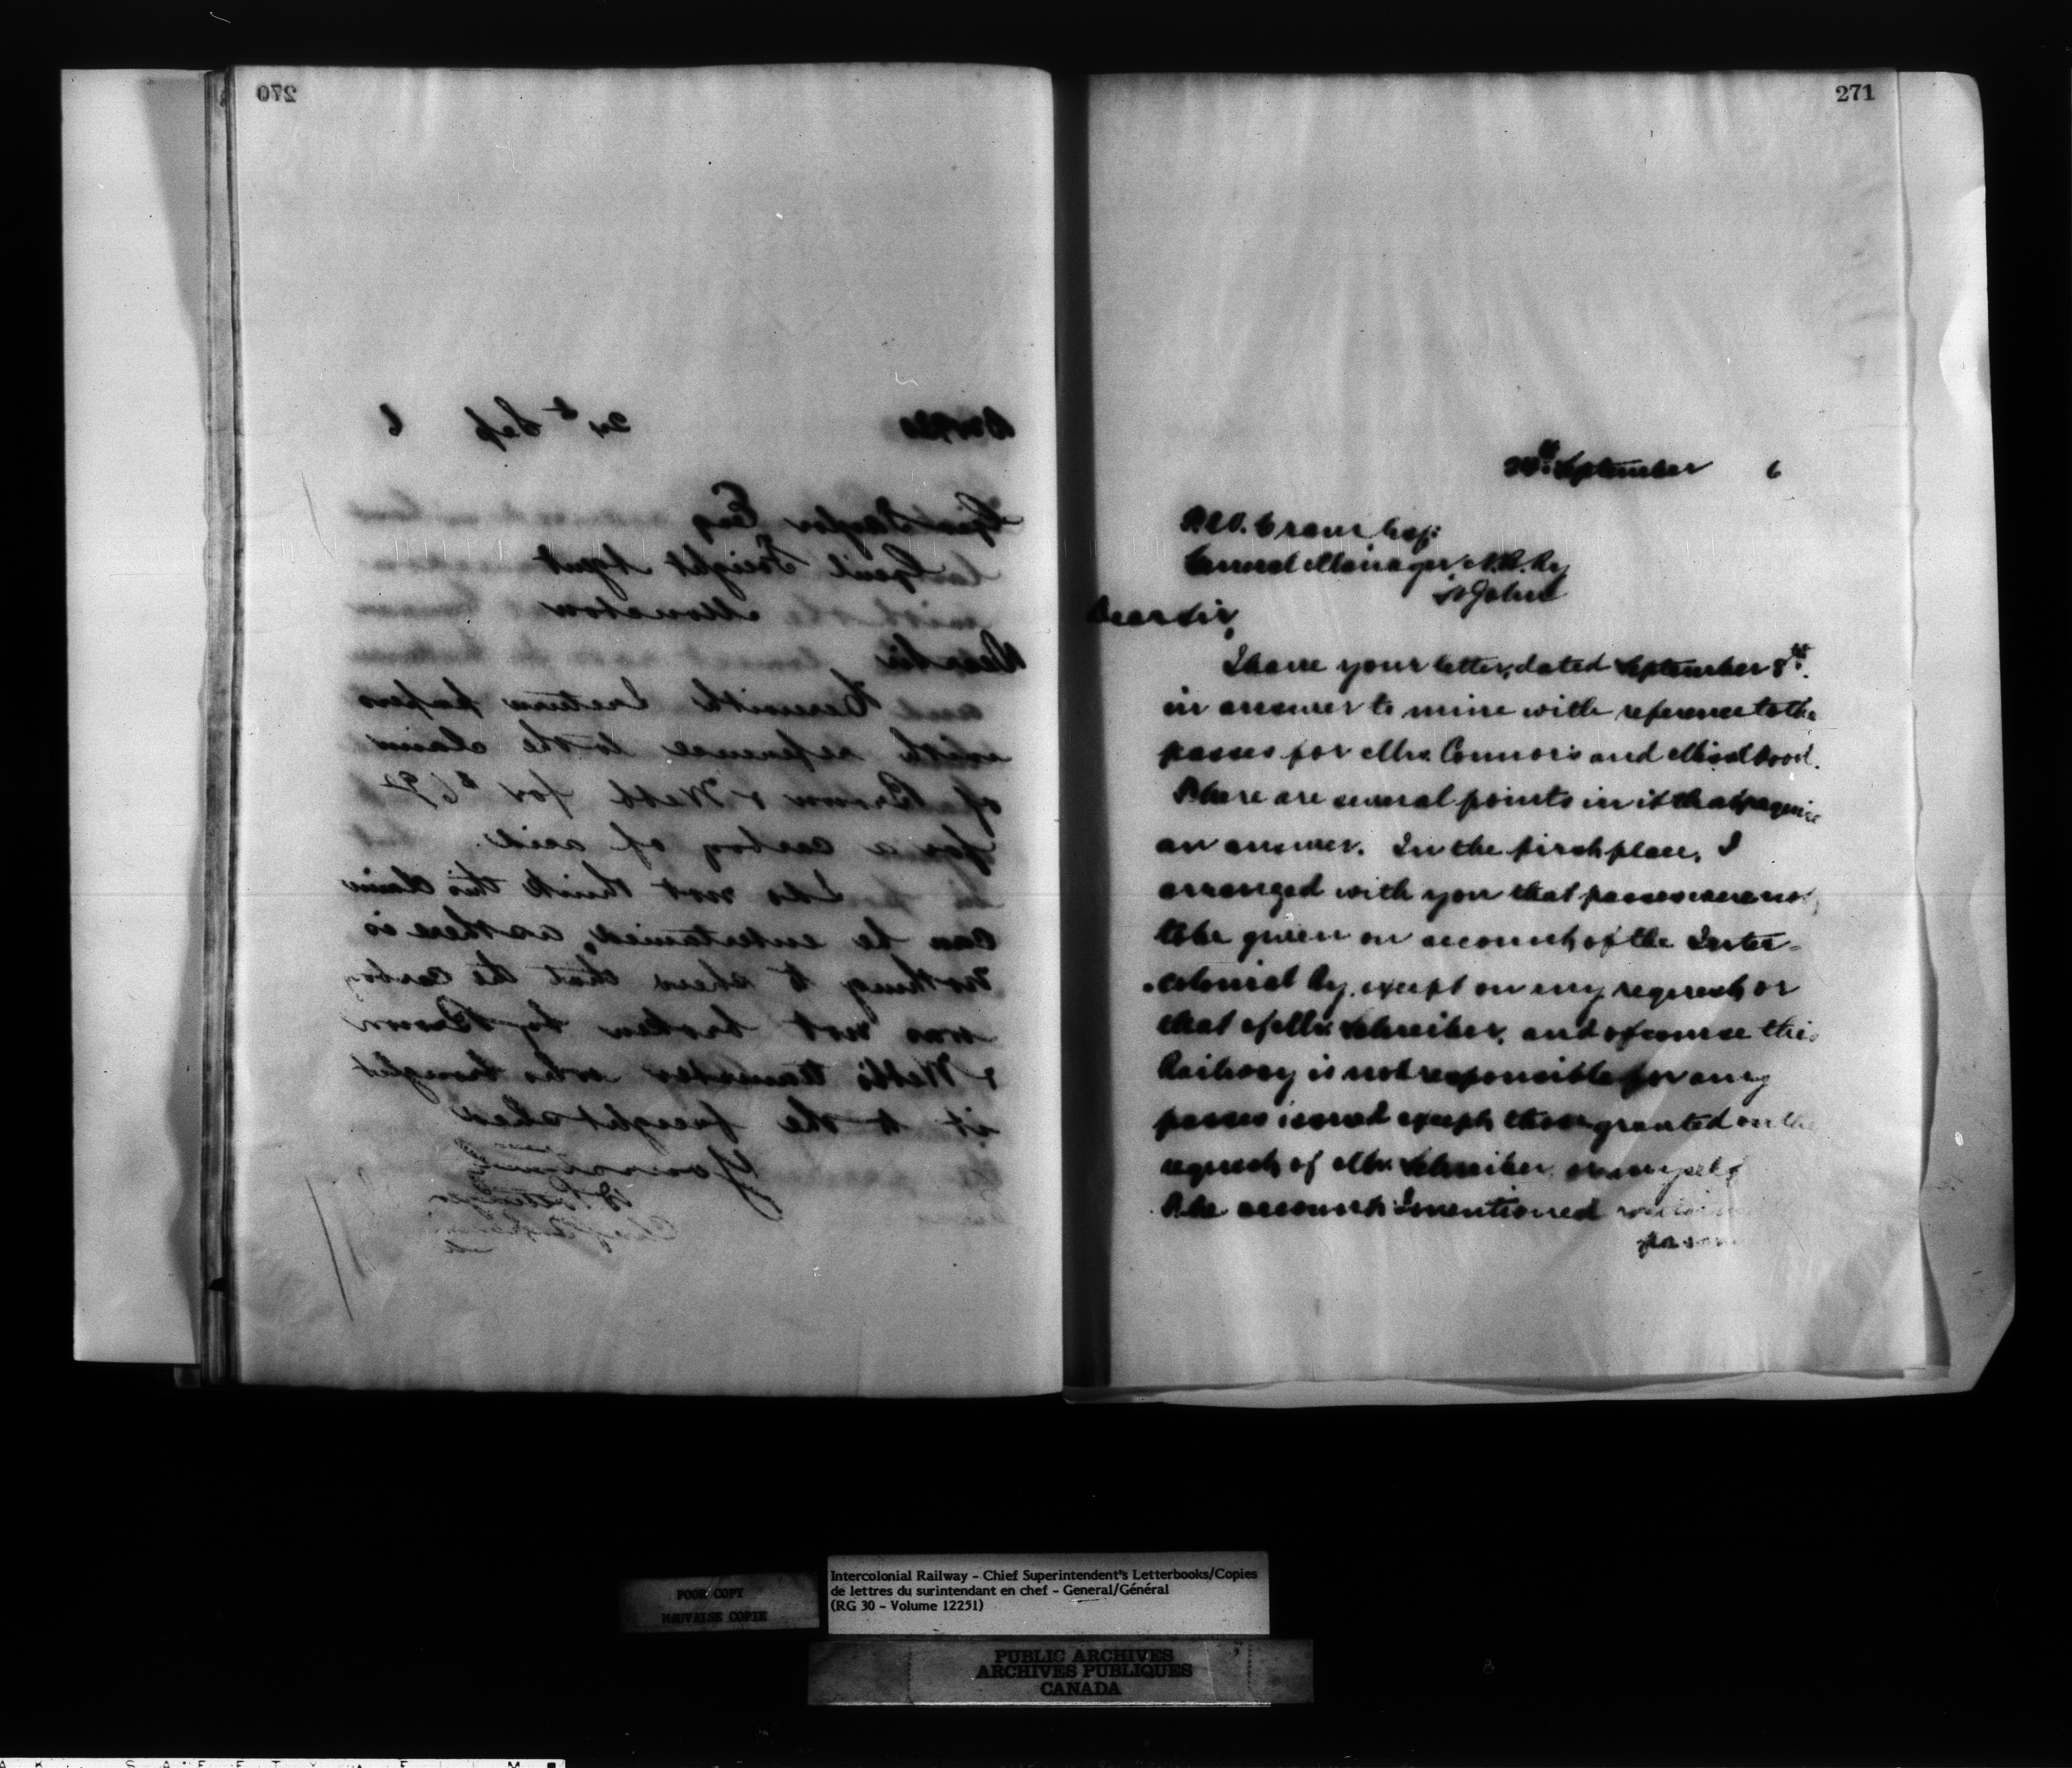 270
24th Sep 6
Geo Taylor Esq
Genl Freight Agent
Moncton
Dear Sir
Herewith I return papers
with reference to the claim
of Brown & Webb for $6
for a carboy of acid.
I do not think this claim
can be entertained, as there is
nothing to shew that the carboy
was not broken by Brown
& Webb's teamster who brought
it to the freight shed
Yours truly
271
24th September 6
General Manager N.B. Ry
St John
Dear Sir,
I have your letter, dated September 8th.
in answer to mine with reference to the
passes for Mrs. Connors and Miss Wood.
There are several points in it that require
an answer. In the first place, I
arranged with you that passes were not
to be given on account of the Inter-
colonial Ry. except on my request or
that of Mr. Schreiber, and of course this
Railway is not responsible for any
passes issued except those granted on the
request of Mr. Schreiber or myself
The account I mentioned
POOR COPY
MAUVAISE COPIE
Intercolonial Railway - Chief Superintendent's Letterbooks/Copies
de lettres du surintendant en chef - General/Général
(RG 30 - Volume 12251)
PUBLIC ARCHIVES
ARCHIVES PUBLIQUES
CANADA